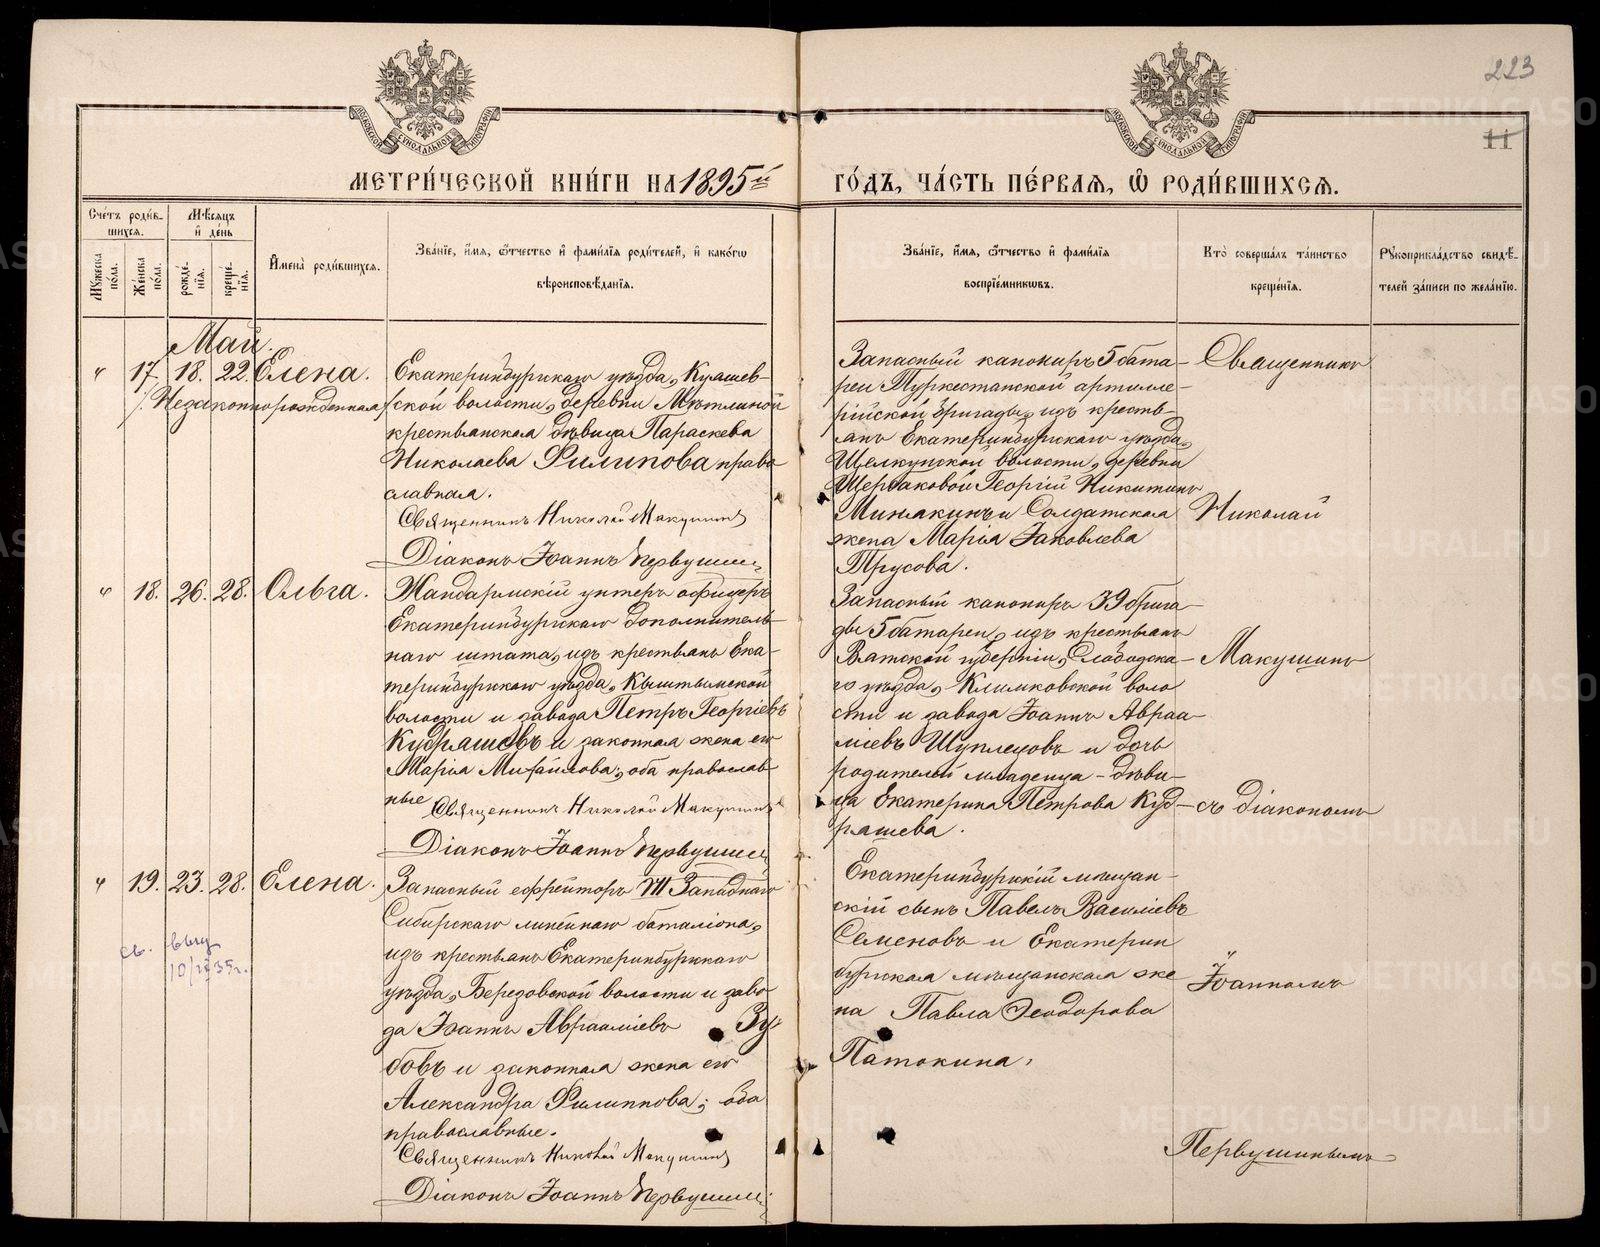 223
11
МОСКОВСКОЙ СѴНОДАЛЬНОЙ ТИПОГРАФІИ
МОСКОВСКОЙ СѴНОДАЛЬНОЙ ТИПОГРАФІИ
МЕТРИ́ЧЕСКОЙ КНИ́ГИ НА 1895й ГО́ДЪ, ЧА́СТЬ ПЕ́РВАЯ, Ѽ РОДИ́ВШИХСЯ.
Сче́тъ роди́в-
шихся.
Мѣ́сяцъ
и҆ де́нь
Мꙋ́жеска по́ла.
Же́нска по́ла.
рожде́-
нїя.
креще́-
нїя.
И҆мена̀ роди́вшихся.
Зва́нїе, и҆́мя, ѻ҆́тчество и҆ фами́лїя роди́телей, и҆ како́гѡ
вѣроисповѣ́данїя.
Зва́нїе, и҆́мя, ѻ҆́тчество и҆ фами́лїя
воспрїе́мникѡвъ.
Кто̀ соверша́лъ та́инство
креще́нїя.
Рꙋкоприкла́дство свидѣ́-
телей за́писи по жела́нїю.
Май.
" 17. 18. 22. Елена.
/. Незаконнорожденная/
Екатеринбургскаго уѣзда, Куяшев-
ской волости, деревни Мѣтлиной
крестьянская дѣвица Параскева
Николаева Филипова право
славная.
Священникъ Николай Макушинъ
Діаконъ Іоаннъ Первушинъ
Запасный канониръ 5 бата-
реи Туркестанской артилле-
рійской бригады, изъ кресть-
янъ Екатеринбургскаго уѣзда,
Щелкунской волости, деревни
Георгій Никитинъ
Минякинъ и Солдатская
жена Марія Іаковлева
Трусова.
Священникъ
Николай
Макушинъ
съ діакономъ
Іоанномъ
Первушинымъ
" 18. 26. 28. Ольга.
Жандармскій унтеръ офицеръ
Екатеринбургскаго дополнитель-
наго штата, изъ крестьянъ Ека-
теринбургскаго уѣзда, Кыштымской
волости и завода Петръ Георгіевъ
Кудряшевъ и законная жена его
Марія Михайлова; оба православ
ные
Священникъ Николай Макушинъ
Діаконъ Іоаннъ Первушинъ
Запасный канониръ 39 брига-
ды 5 батареи, изъ крестьянъ
Вятской губерніи, Слободска-
го уѣзда, Климковской воло
сти и завода Іоаннъ Авраа-
міевъ Шуплецовъ и дочь
родителей младенца - дѣви-
ца Екатерина Петрова Куд-
ряшева.
" 19. 23. 28. Елена.
св. выд
10/II 35 г.
Запасный ефрейторъ VIII Западнаго
Сибирскаго линейнаго баталіона,
изъ крестьянъ Екатеринбургскаго
уѣзда, Березовской волости и заво
да Іоаннъ Авраамiевъ Зу-
бовъ и законная жена его
Александра Филиппова; оба
православные.
Священникъ Николай Макушинъ
Діаконъ Іоаннъ Первушинъ
Екатеринбургскій мѣщан-
скій сынъ Павелъ Василіевъ
Семеновъ и Екатерин
бургская мѣщанская же
на Павла Ѳеодорова
Патокина.
METRIKI.GASO-URAL.RU